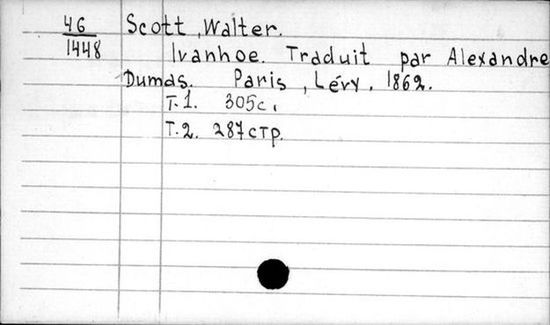 46
1448
Scott, Walter.
Ivanhoe. Traduit par Alexandre
Dumas. Paris, Lévy, 1862.
Т.1. 305с.
Т.2. 287стр.